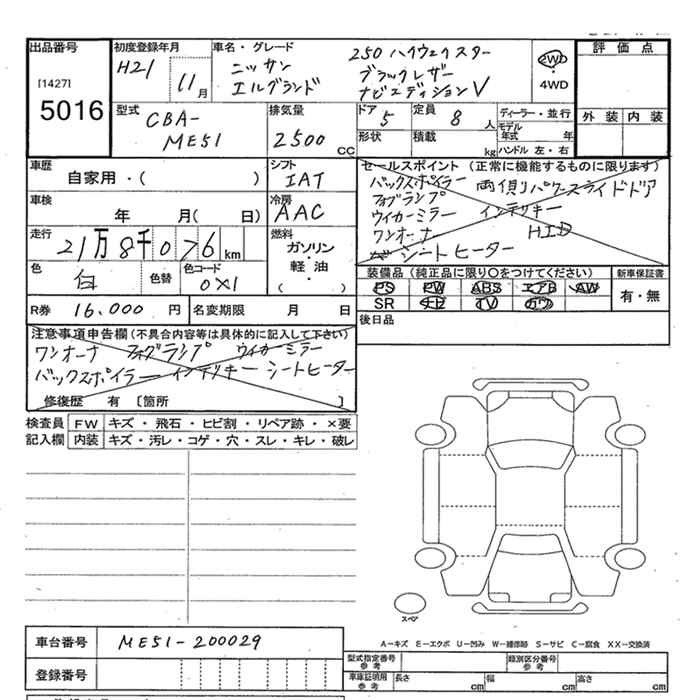 出品番号
[1427]
5016
初度登録年月
H21
11月
車名・グレード
ニッサン
エルグランド
250 ハイウェイスター
ブラックレザー
ナビエディションV
2WD
・
4WD
評価点
外装 内装
型式
CBA-
ME51
排気量
2500
CC
ドア
5
定員
8
人
形状
積載
kg
ディーラー・並行
モデル
年式 年
ハンドル 左・右
車歴
自家用・( )
シフト
IAT
車検
年 月( 日)
冷房
AAC
走行
21万8千076km
燃料
ガソリン
・
軽油・
( )
色
白
色替
色コード
0X1
R券 16,000 円
名変期限 月 日
セールスポイント (正常に機能するものに限ります)
バックスポイラー 両側パワースライドドア
フォグランプ インテリキー
ウイカーミラー
ワンオーナー HID
シートヒーター
装備品 (純正品に限り〇をつけてください)
PS PW ABS エアB AW
SR ナビ TV カワ
新車保証書
有・無
後日品
注意事項申告欄(不具合内容等は具体的に記入して下さい)
ワンオーナ フォグランプ ウイカーミラー
バックスポイラー インテリキー シートヒーター
修復歴 有 〔箇所 〕
検査員
記入欄
FW キズ・飛石・ヒビ割・リペア跡・×要
内装 キズ・汚レ・コゲ・穴・スレ・キレ・破レ
スペア
車台番号 ME51-200029
登録番号
A-キズ E-エクボ U-凹み W-補修跡 S-サビ C-腐食 XX-交換済
型式指定番号
参考
類別区分番号
参考
車庫証明用
参考
長さ cm 幅 cm 高さ cm